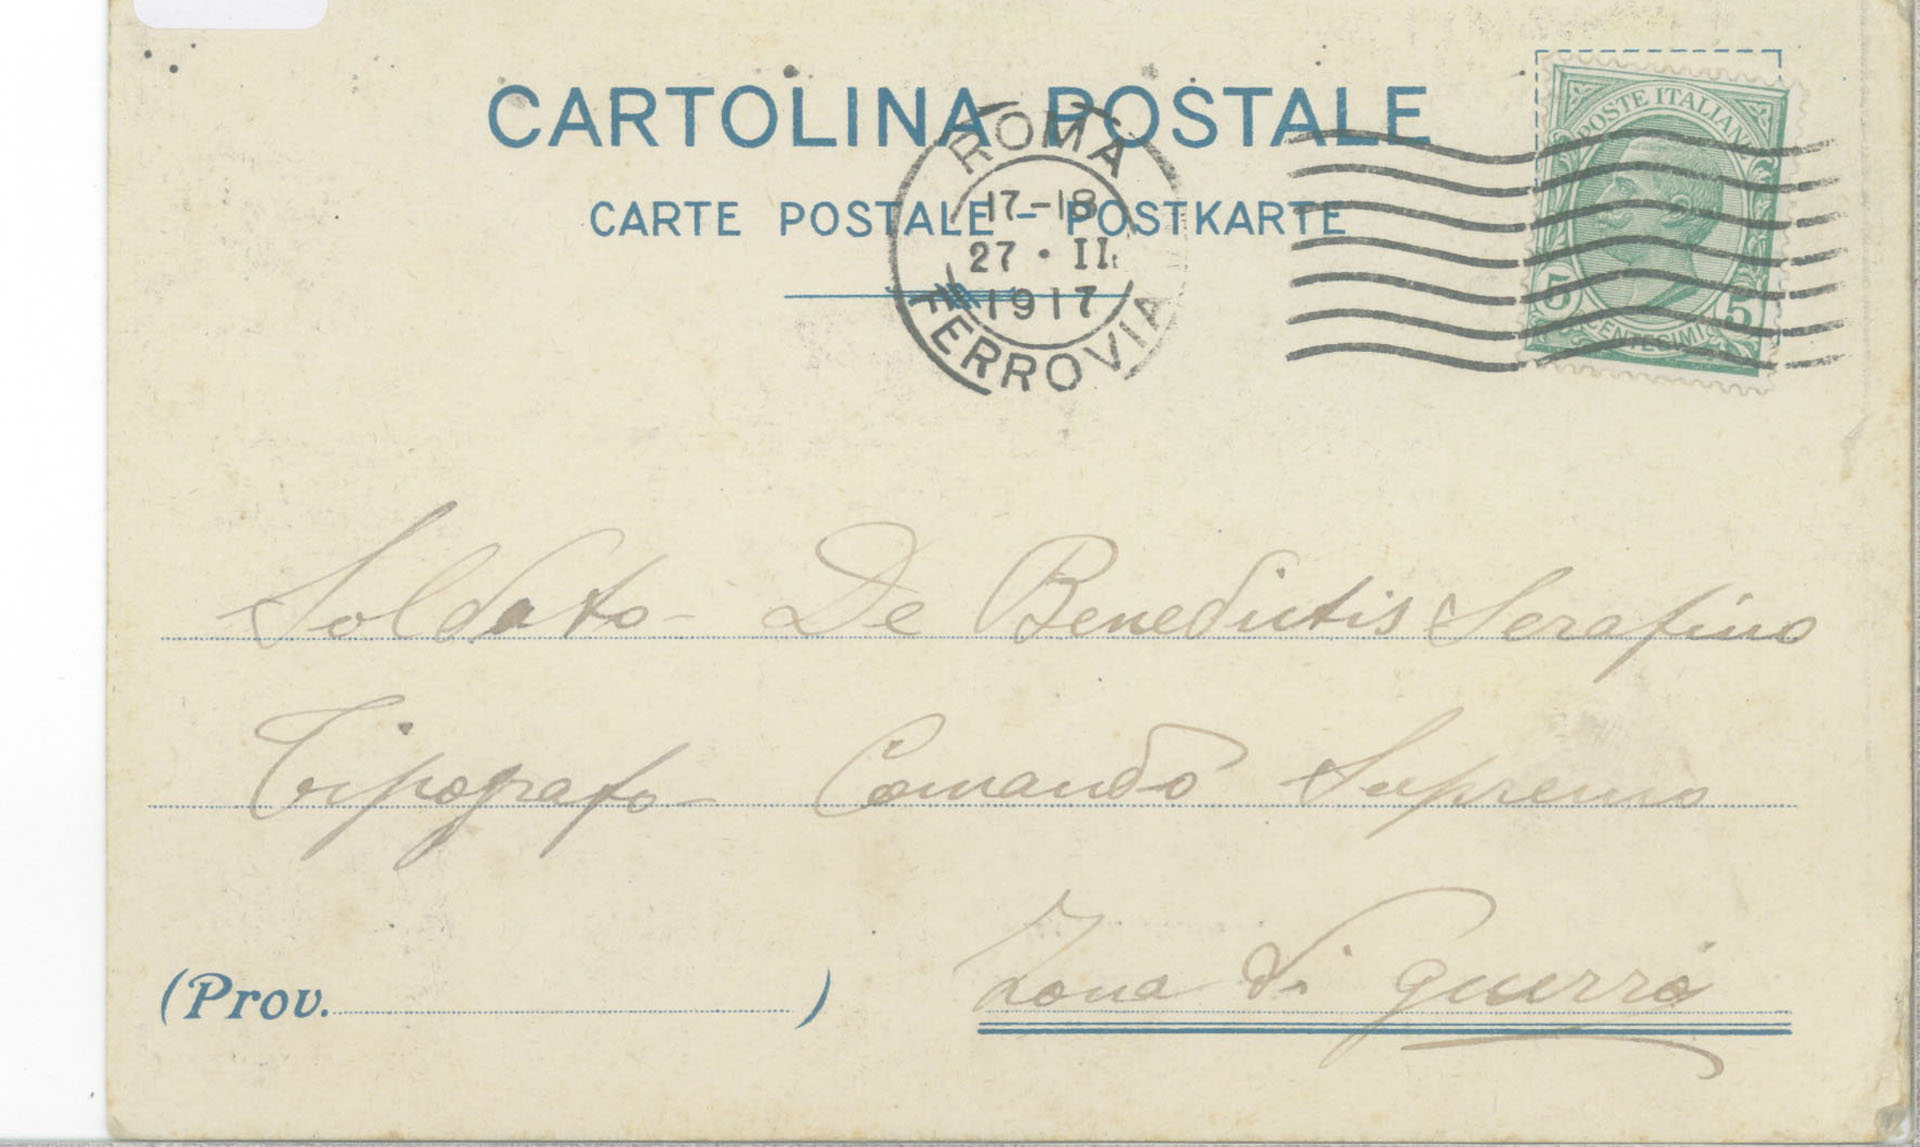 CARTOLINA POSTALE
CARTE POSTALE - POSTKARTE
ROMA
17-18
27 · II
1917
FERROVIA
POSTE ITALIANE
5 5
CENTESIMI
Soldato - De Benedictis Serafino
Tipografo - Comando Supremo
Zona di guerra
(Prov. )